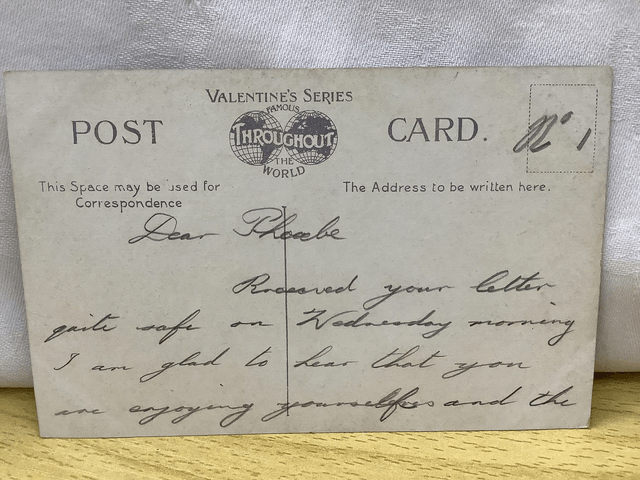 VALENTINE'S SERIES
FAMOUS
THROUGHOUT
THE
WORLD
POST CARD.
Nº 1
This Space may be used for
Correspondence
The Address to be written here.
Dear Phoebe
Received your letter
quite safe on Wednesday morning
I am glad to hear that you
are enjoying yourselfes and the